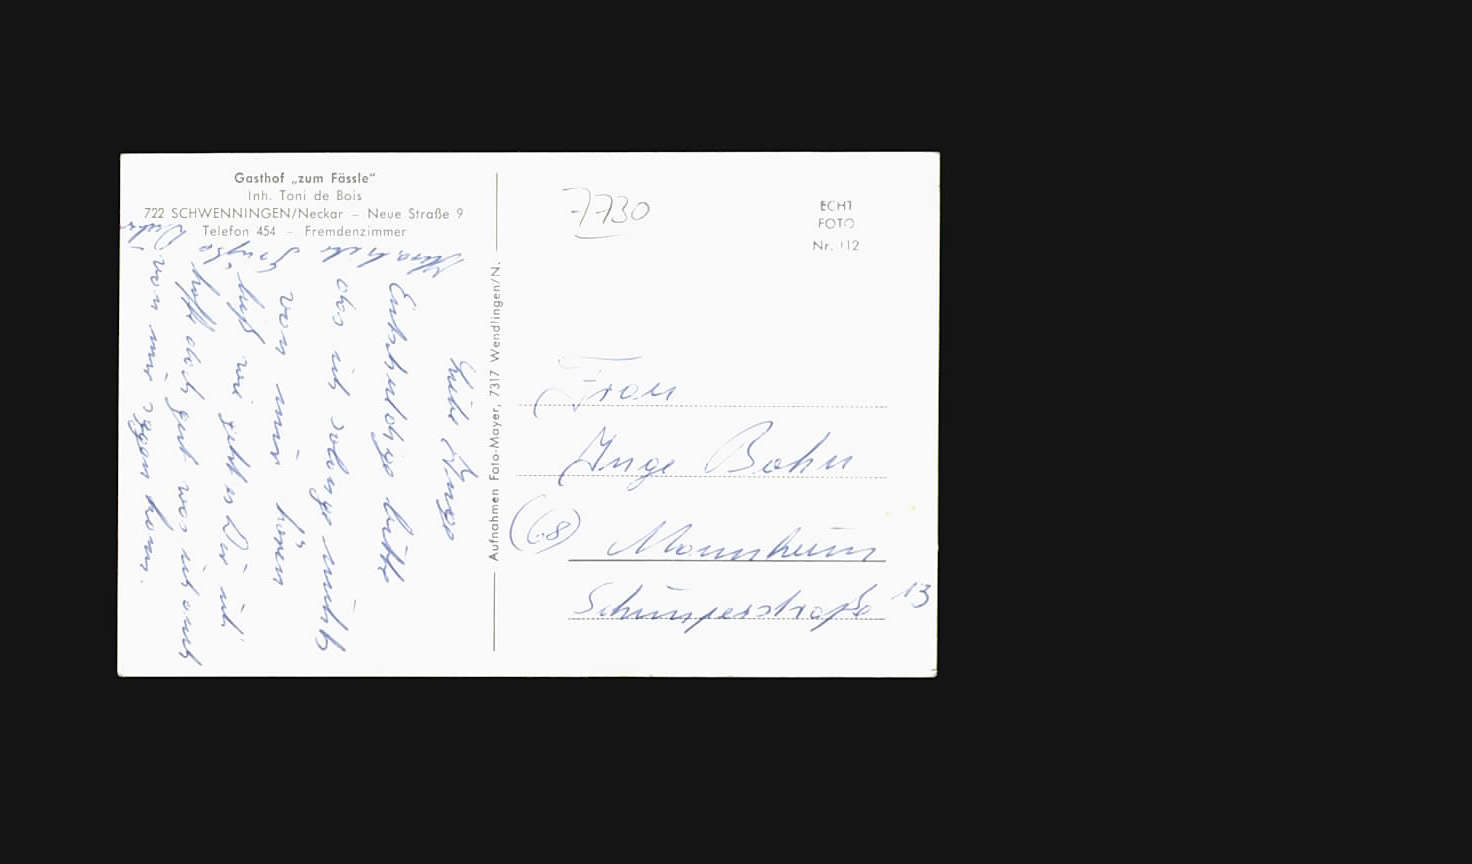 Gasthof „zum Fässle“
Inh. Toni de Bois
722 SCHWENNINGEN/Neckar – Neue Straße 9
Telefon 454 – Fremdenzimmer
Liebe Inge
Entschuldige bitte
das ich solange nichts
von mir hören
ließ wie geht es Dir ich
hoffe doch gut was ich auch
von mir sagen kann.
Herzliche Grüße
Aufnahmen Foto-Mayer, 7317 Wendlingen/N.
7730
ECHT
FOTO
Nr. 112
Frau
Inge Bohn
(68) Mannheim
Schimperstraße 13